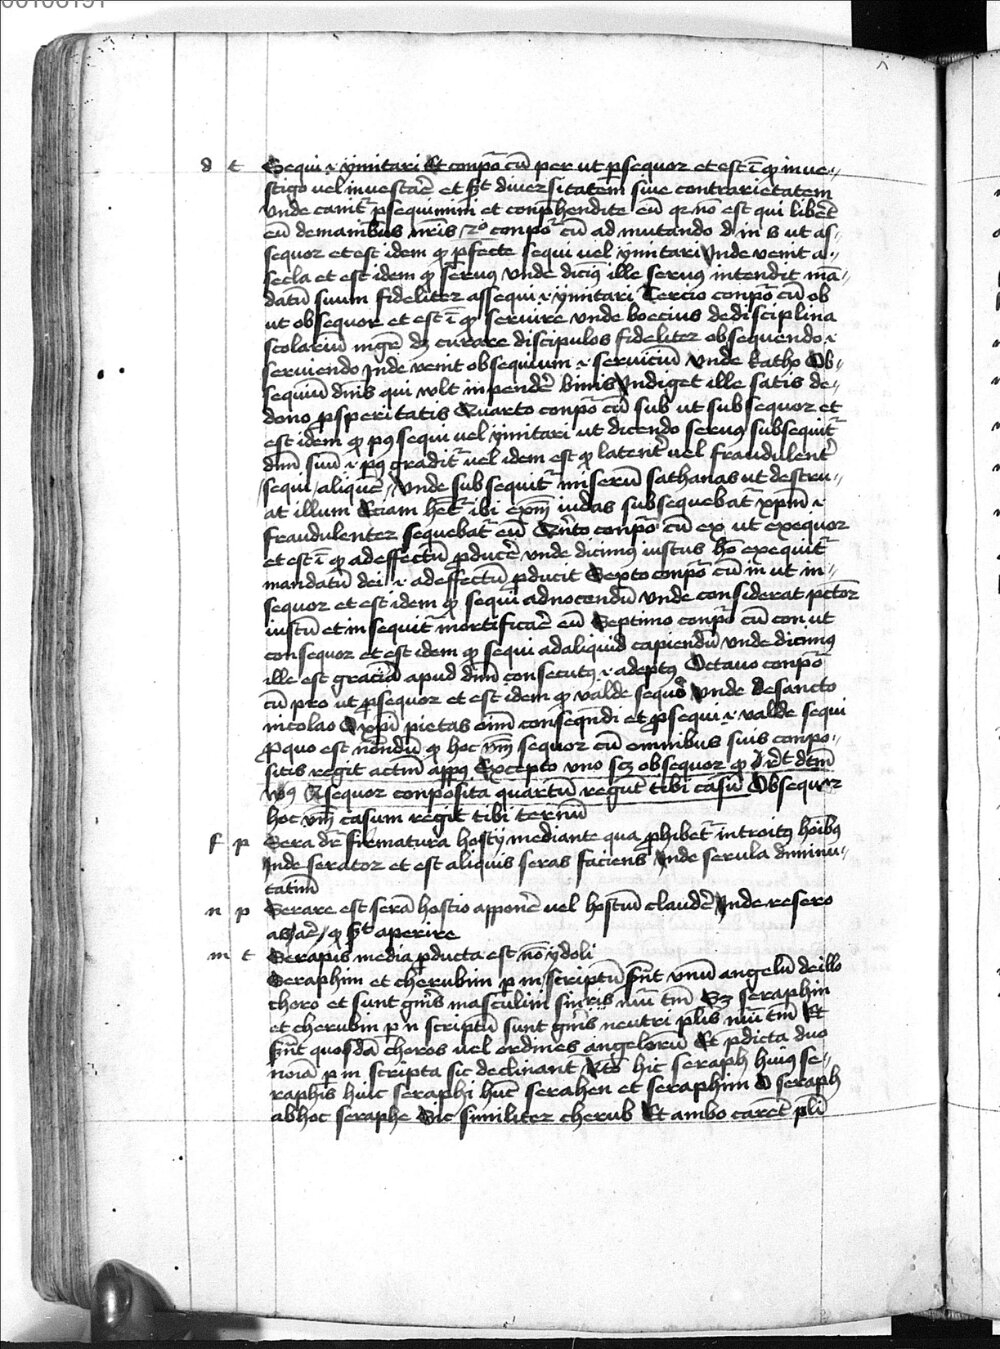 d t Sequi ⁊ ymitari Et conpōr cū per ut ꝑsequor et est i ꝙ inve⸗
stigo vel investār̄ et sꝫt diversitatem sive contrarietatem
Unde canit̄ ꝑsequimini et conp̄hendite eū qꝛ nō est qui liber̄et
eū de manibus nr̄is 2o conpōr cū ad mutando d in s ut as⸗
sequor et est idem ꝙ ꝑfecte sequi vel ymitari Inde venit a⸗
secla et est idem ꝙ servus unde dicimꝰ ille servus intendit mā⸗
datū suum fideliter assequi ⁊ ymitari Tercio conpōr cū ob
ut obsequor et est i ꝙ servire unde boecius de disciplina
scolariū mgr̄ dꝫ curare discipulos fideliter obsequendo ⁊
serviendo Inde venit obsequium ⁊ serviciū Unde katho Ob⸗
sequiū dn̄is qui vult inpendē binis Indiget ille satis de⸗
dono ꝓsperitatis Quarto conpōr cū sub ut subsequor et
est idem ꝙ pꝰ sequi vel ymitari ut dicendo servus subsequit̄
dnm̄ suū ⁊ pꝰ gradit̄ vel idem est ꝙ latenter̄ vel fraudulent̄
sequi aliquē Unde subsequit̄ miserū sathanas ut destru⸗
at illum Eciam het̄ ibi exm̄ iudas subsequebat̄ xpm̄ ⁊
fraudulenter sequebat̄ eū Qn̄to conpōr cū ex ut exequor
et est i ꝙ ad effectū ꝓducē unde dicimus iustus hō exequit̄
mandatū dei ⁊ ad effectū ꝓducit Sexto conpōr cū in ut in⸗
sequor et est idem ꝙ sequi ad nocendū Unde considerat pctōr
iustū et insequit̄ mortificār̄ eū Septimo conpōr cū con ut
consequor et est idem ꝙ sequi ad aliquid capiendū unde dicimus
ille est graciā apud dnm̄ consecutꝰ ⁊ adeptꝰ Octavo conpōr
cū pro ut ꝓsequor et est idem ꝙ valde sequi Unde de sancto
nicolao O xpi pietas oim̄ conseq̄ndi et ꝓsequi ⁊ valde sequi
Pro quo est notandū ꝙ hoc vm̄ sequor cū omnibus suis conpo⸗
sitis regit actm̄ Excepto uno scꝫ obsequor ꝙ dtm̄
vꝰ A sequor conposita quartū regunt tibi casū Obsequor
hoc vm̄ casum regit tibi ternū
f p Sera dr̄ firmatura hostij mediante qua ꝓhibet̄ introitꝰ hoībꝰ
Inde serator et est aliquis seras faciens Inde serula diminu⸗
tatim̄
n p Serare est serā hostio apponē vel hostiū claudē Inde resero
as are ꝙ sꝫt aperire
m t Serapis media ꝓducta est nō ydoli
Seraphim et cherubim p m scriptū sn̄t unū angelū de illo
choro et sunt gn̄is masculini sin̄ris nūi tm̄ Sꝫ seraphin
et cherubin p n scriptū sunt gn̄is neutri plis nūi tm̄ Et
sn̄t quosdā choros vel ordines angelorū Et p̄dicta duo
noīa p m scripta sic declinant̄ Nto hic seraph huius se⸗
raphis huic seraphi hūc seraphen et seraphim O seraph
ab hoc seraphe Sic similiter cherub Et ambo carēt pli